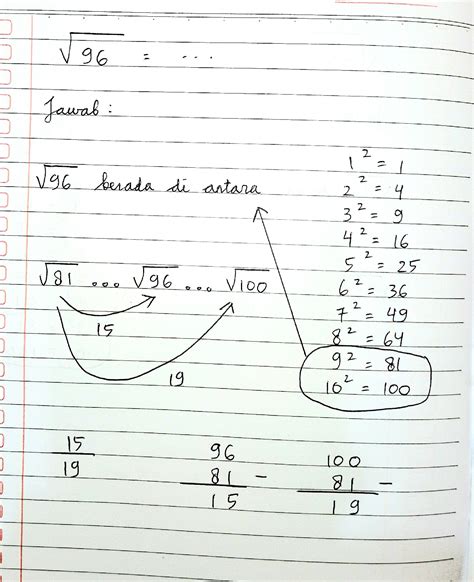 √96 = ...
Jawab :
√96 berada di antara
1² = 1
2² = 4
3² = 9
4² = 16
5² = 25
6² = 36
7² = 49
8² = 64
9² = 81
10² = 100
√81 ... √96 ... √100
15
19
15
19
96
81 -
15
100
81 -
19